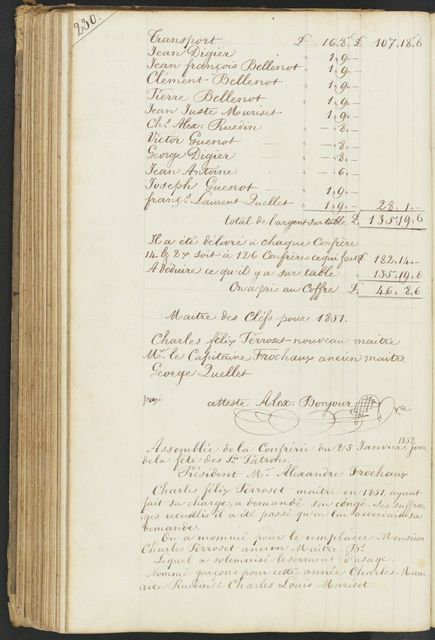 230.
Transport £ 16.8.- £ 107.18.6
Jean Digier 1.9.-
Jean françois Bellenot 1.9.-
Clément Bellenot 1.9.-
Pierre Bellenot 1.9.-
Jean Juste Muriset 1.9.-
Ch.s Alex: Ruedin -.8.-
Victor Guenot -.8.-
George Digier -.8.-
Jean Antoine -.6.-
Joseph Guenot 1.9.-
franç.s Laurent Quellet 1.9.- 28.1.-
total de l'argent sur table £ 135.19.6
Il a été délivré à chaque Confrère
14 bz 2x soit à 126 Confrères ce qui fait £ 182.14.-
A déduire ce qu'il y a sur table 135.19.6
On a pris au Coffre £ 46.8.6
Maitre des Cléfs pour 1851.
Charles félix Perroset nouveau maitre
Mr. le Capitaine Frochaux ancien maitre
George Quellet
atteste Alex: Bonjour
Assemblée de la Confrérie du 25 Janvier 1852, jour
de la fête des Sts. Patrons.
Président Mr. Alexandre Frochaux
Charles félix Perroset maitre en 1851, ayant
fait sa charge, a demandé son congé. Les suffra-
ges recueillis il a été passé qu'on lui accordait sa
demande.
On a nommé pour le remplacer Monsieur
Charles Perroset ancien Maitre Br.
Lequel a solemnisé le serment d'usage.
Nommé garçons pour cette année Charles Mau-
rice Ruedin & Charles Louis Muriset.